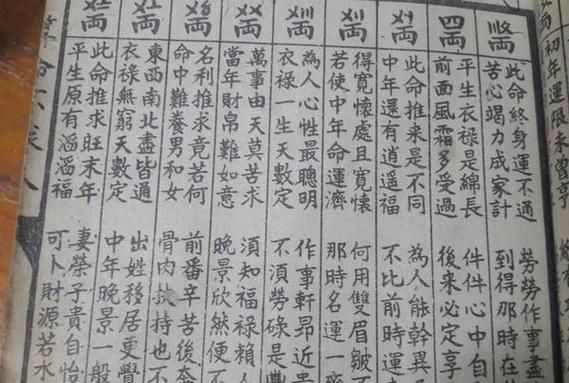 初年運限未曾亨
此命終身運不通 勞勞作事盡
苦心竭力成家計 到得那時在
四兩
平生衣祿是綿長 件件心中自
前面風霜多受過 後來必定享
此命推来是不同 為人能幹異
中年還有逍遥福 不比前時運
得寬懷處且寬懷 何用雙眉皺
若使中年命運濟 那時名運一
為人心性最聰明 作事軒昂近
衣禄一生天數定 不須勞碌是
萬事由天莫苦求 須知福禄賴人
當年財帛難如意 晚景欣然便不
名利推求竟若何 前番辛苦後奔
命中難養男和女 骨肉扶持也不
東西南北盡皆通 出姓移居更覺
衣禄無窮天數定 中年晚景一般
此命推求旺末年 妻榮子貴自怡
平生原有滔滔福 可卜財源若水